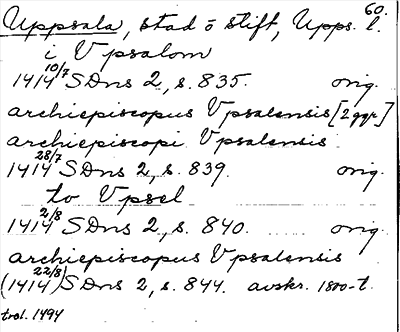 60.
Uppsala, stad o stift, Upps. l.
i Vpsalom
1414 10/7 SDns 2, s. 835. orig.
archiepiscopus Vpsalensis [2 ggr]
archiepiscopi Vpsalensis
1414 28/7 SDns 2, s. 839. orig.
to Vpsel
1414 2/8 SDns 2, s. 840. orig.
archiepiscopus Vpsalensis
(1414 22/8) SDns 2, s. 844. avskr. 1800-t.
trol. 1494